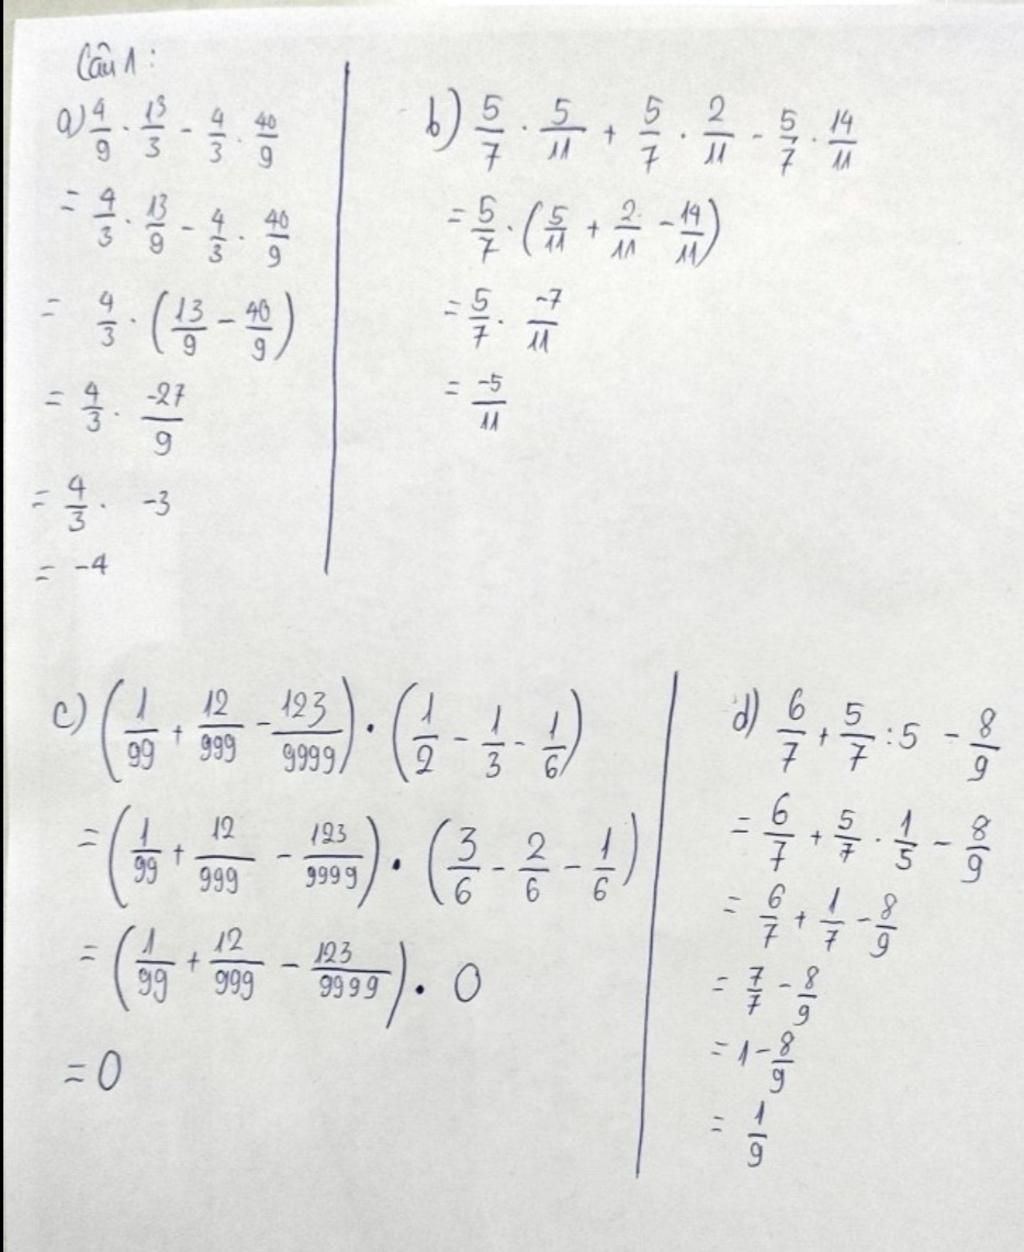 Câu 1:
a) 4/9 . 13/3 - 4/3 . 40/9
= 4/3 . 13/9 - 4/3 . 40/9
= 4/3 . (13/9 - 40/9)
= 4/3 . -27/9
= 4/3 . -3
= -4
b) 5/7 . 5/11 + 5/7 . 2/11 - 5/7 . 14/11
= 5/7 . (5/11 + 2/11 - 14/11)
= 5/7 . -7/11
= -5/11
c) (1/99 + 12/999 - 123/9999) . (1/2 - 1/3 - 1/6)
= (1/99 + 12/999 - 123/9999) . (3/6 - 2/6 - 1/6)
= (1/99 + 12/999 - 123/9999) . 0
= 0
d) 6/7 + 5/7 : 5 - 8/9
= 6/7 + 5/7 . 1/5 - 8/9
= 6/7 + 1/7 - 8/9
= 7/7 - 8/9
= 1 - 8/9
= 1/9